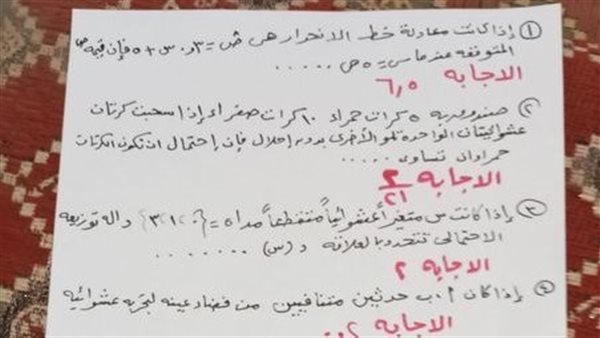 ① إذا كانت معادلة خط الانحدار هي ص = ٣ و. س + ٥ فإن قيمة ص
المتوقعة عندما س = ٥ هي .....
الاجابه ٦,٥
② صندوق به ٥ كرات حمراء ١٠ كرات صفراء إذا سحبت كرتان
عشوائيتان الواحدة تلو الأخرى بدون إحلال فإن إحتمال ان تكون الكرتان
حمراوان تساوى .....
الاجابه ٢/٢١
③ إذا كانت س متغيراً عشوائياً متقطعاً مداه = {٠،١،٢،٣} دالة توزيعه
الاحتمالى تتحدد بالعلاقة د (س) .......
الاجابه ٢
④ إذا كان أ، ب حدثين متنافيين من فضاء عينه لتجربه عشوائيه
الاجابه